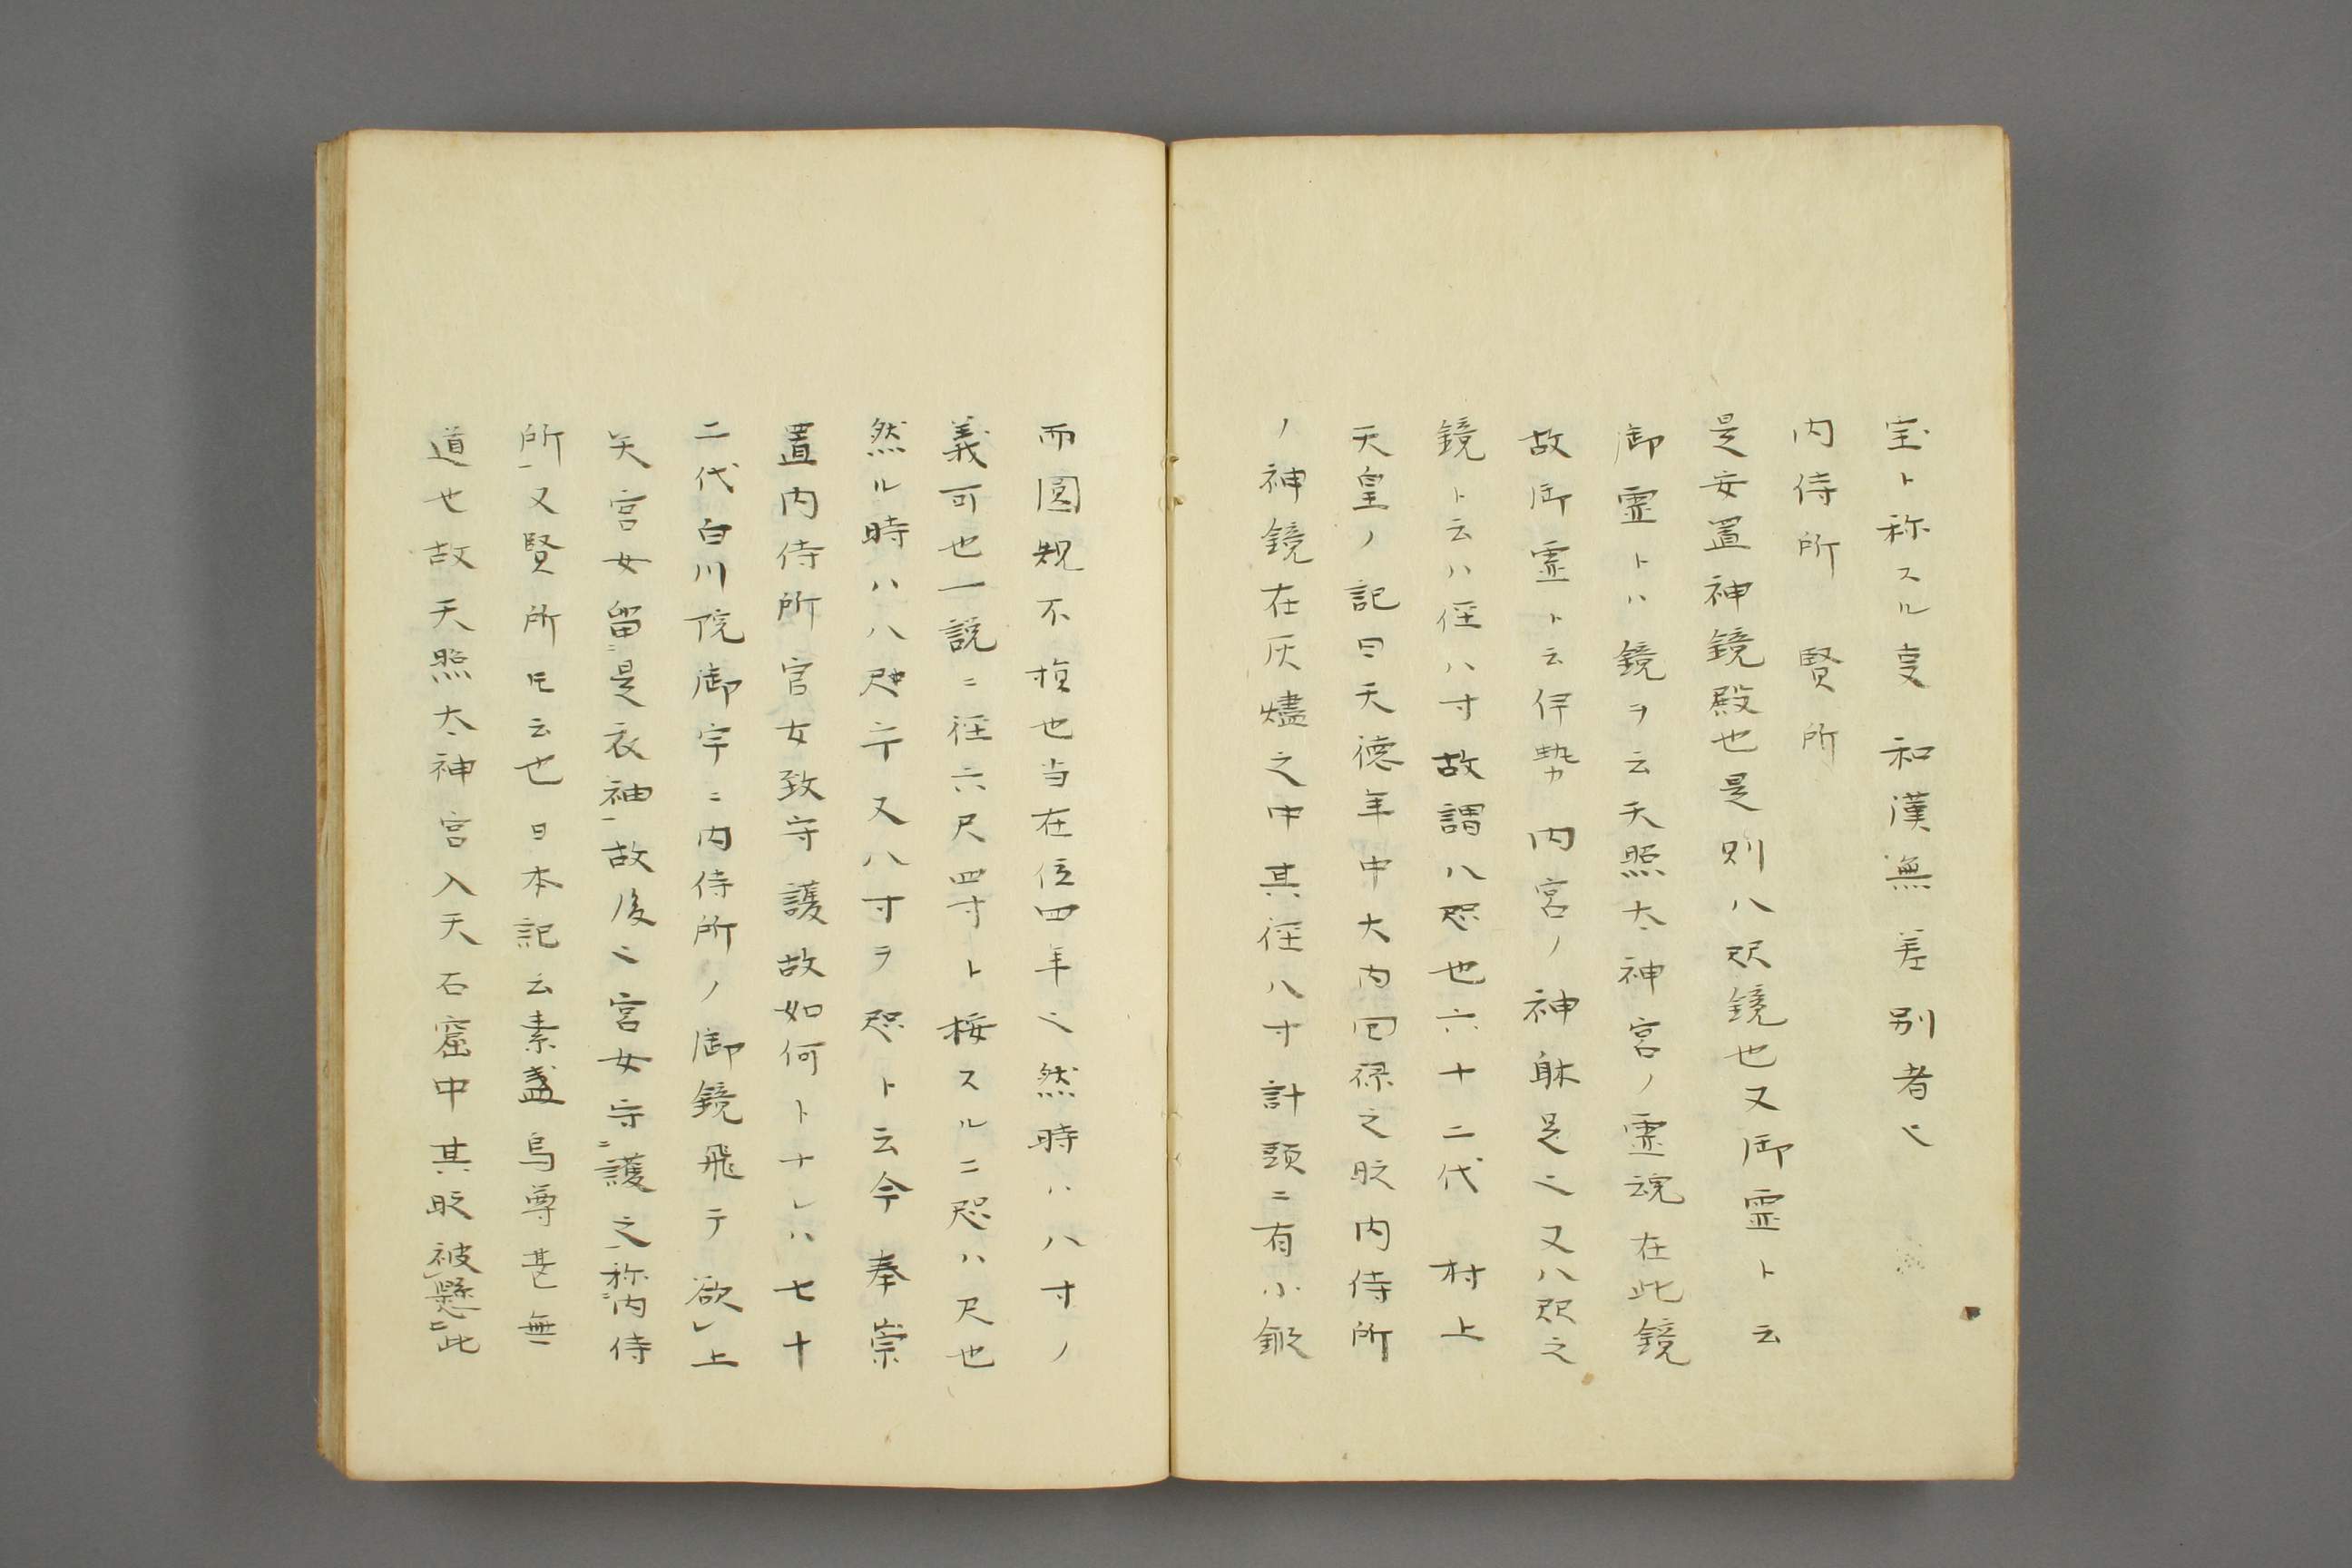 宝ト称スル事和漢無差別者也
内侍所　賢所
是安置神鏡殿也是則八咫鏡也又御霊ト云
御霊トハ鏡ヲ云天照太神宮ノ霊魂在此鏡
故御霊ト云伊勢内宮ノ神躰是也又八咫之
鏡ト云ハ径八寸故謂八咫也六十二代　村上
天皇ノ記曰天徳年中大内回禄之時内侍所
ノ神鏡在灰燼之中其径八寸計頭ニ有小瑕
而圓規不損也当在位四年也然時ハ八寸ノ
義可也一説ニ径六尺四寸ト按スルニ咫ハ尺也
然ル時ハ八咫ニ又八寸ヲ咫ト云今奉崇
置内侍所官女致守護故如何トナレハ七十
二代白川院御宇ニ内侍所ノ御鏡飛テ欲レ上
天宮女留ニ是衣袖一故後也宮女守ニ護之一称ニ内侍
所一又賢所トモ云也日本記云素盞烏尊甚無
道也故天照太神宮入天石窟中其時被レ懸ニ此